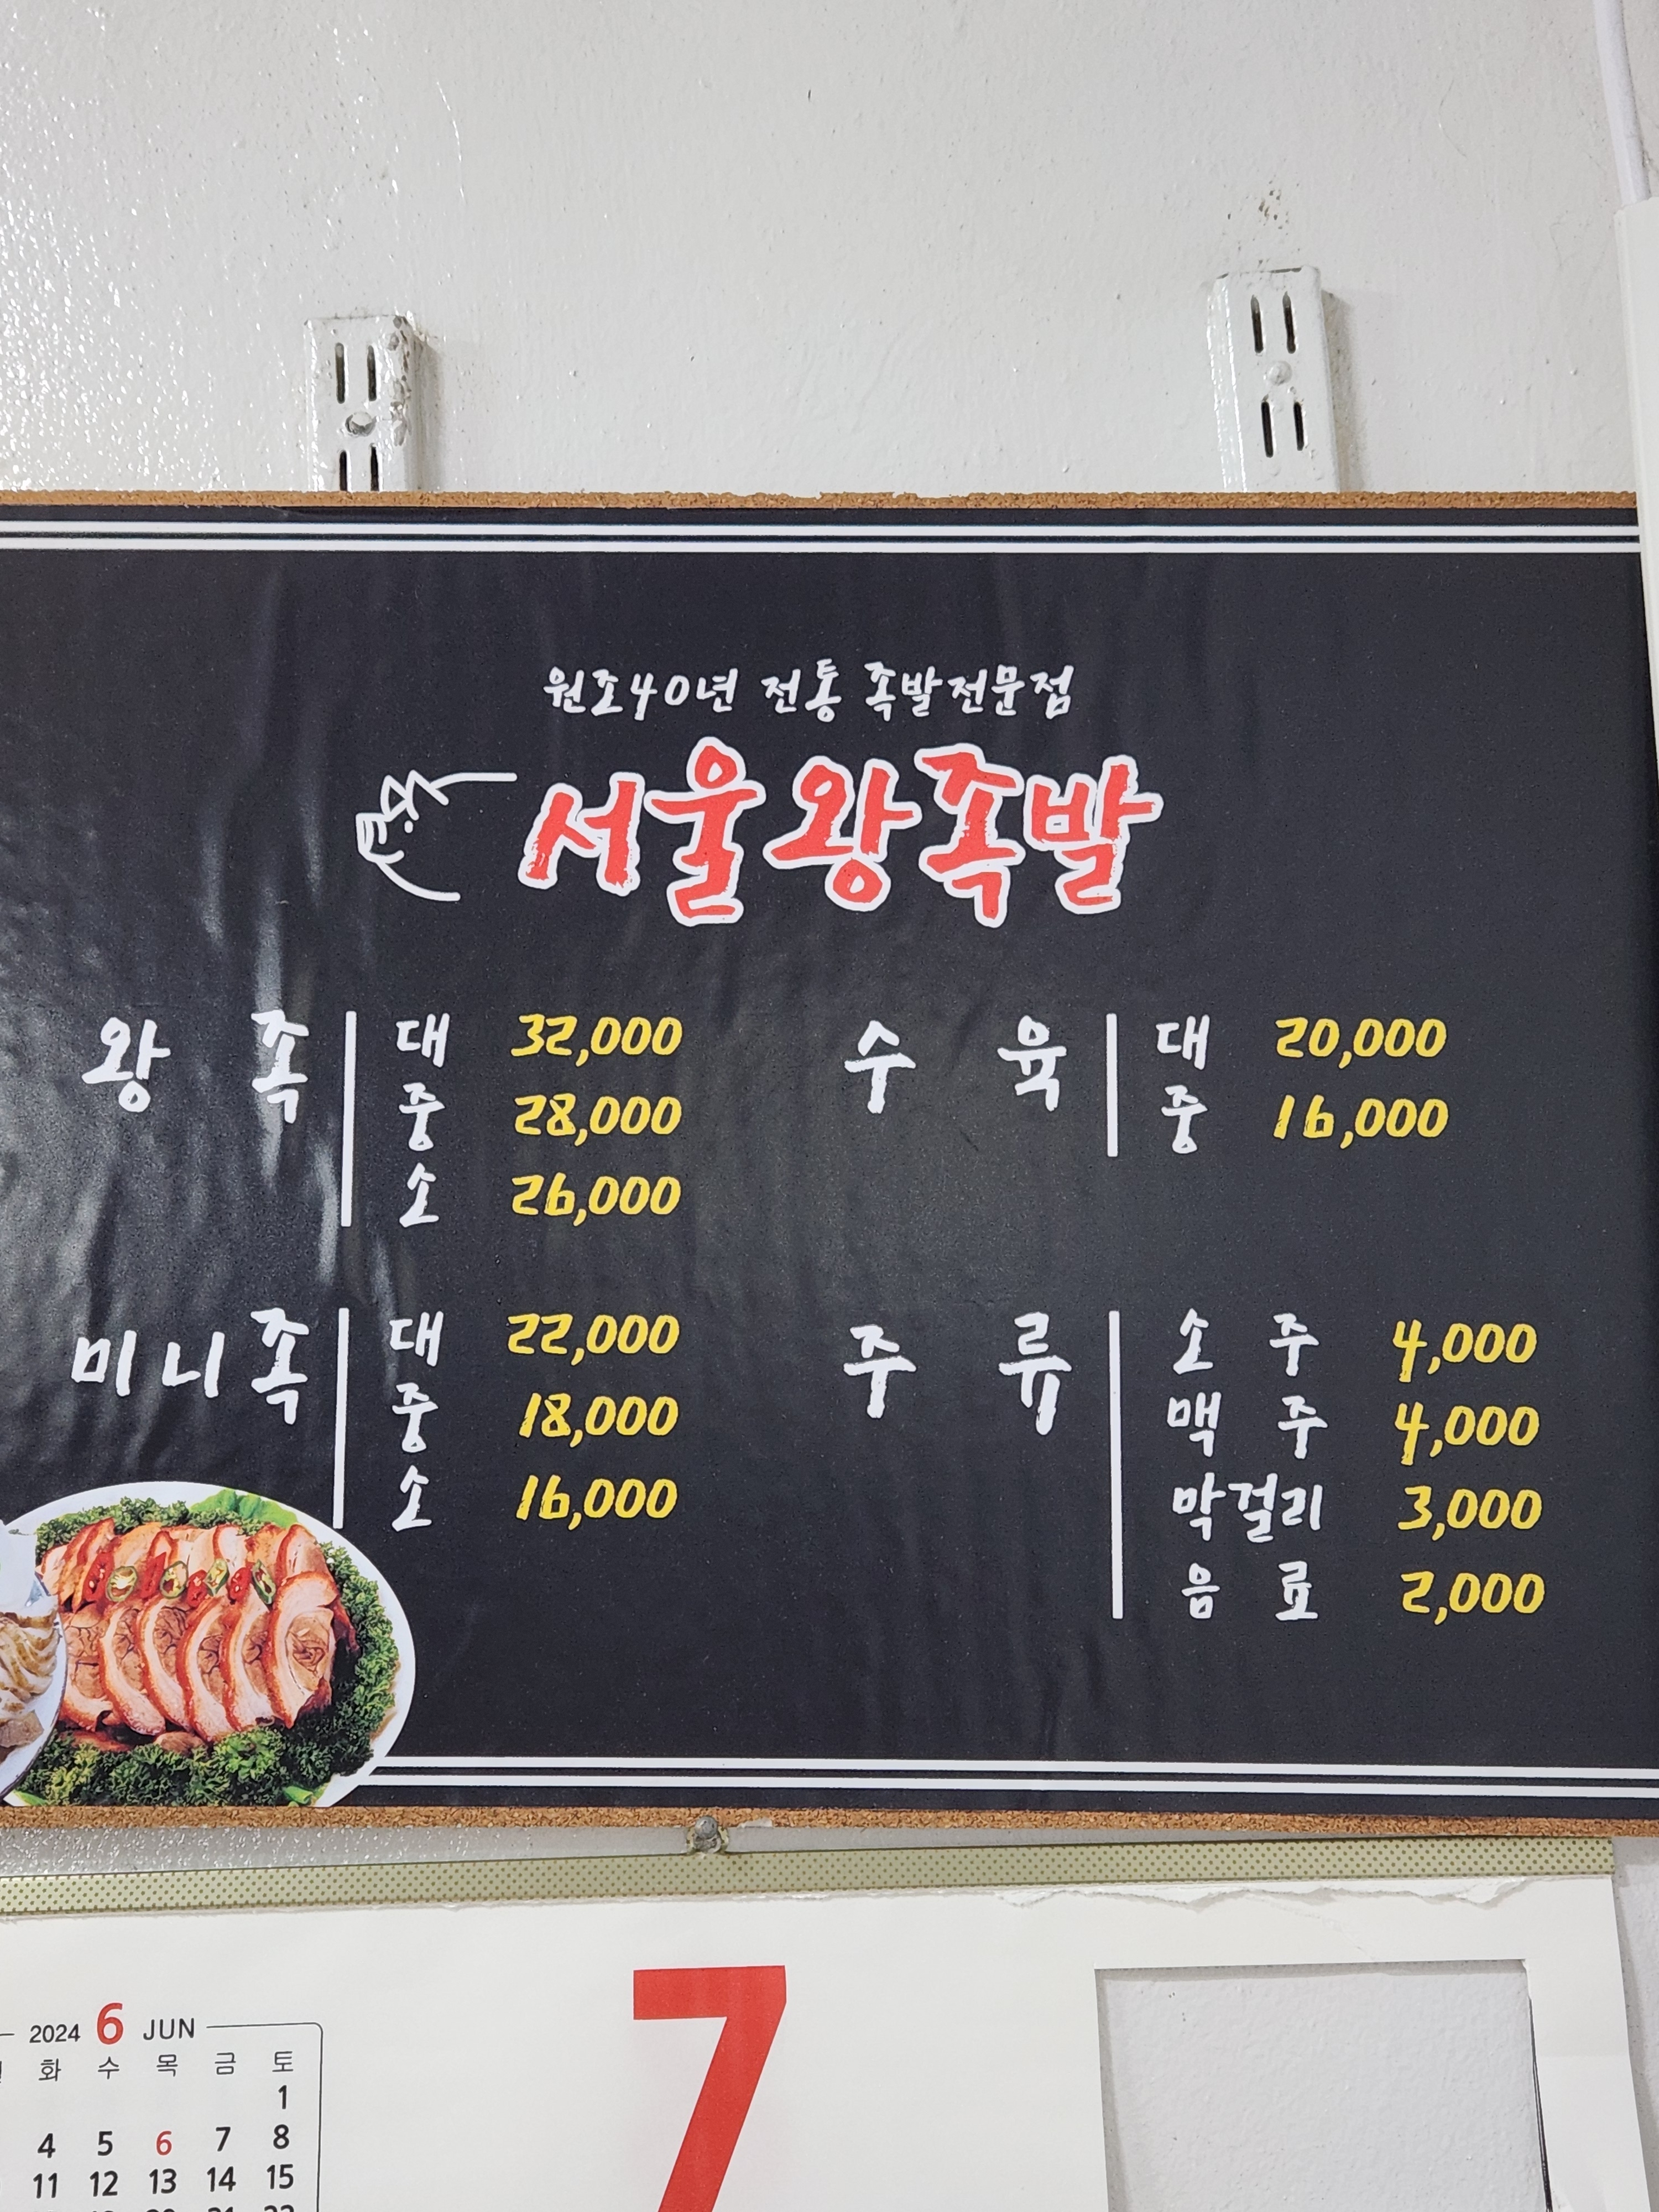 원조40년 전통 족발전문점
서울왕족발
왕 족
대 32,000
중 28,000
소 26,000
수 육
대 20,000
중 16,000
미니족
대 22,000
중 18,000
소 16,000
주 류
소 주 4,000
맥 주 4,000
막걸리 3,000
음 료 2,000
2024 6 JUN
화 수 목 금 토
1
4 5 6 7 8
11 12 13 14 15
7